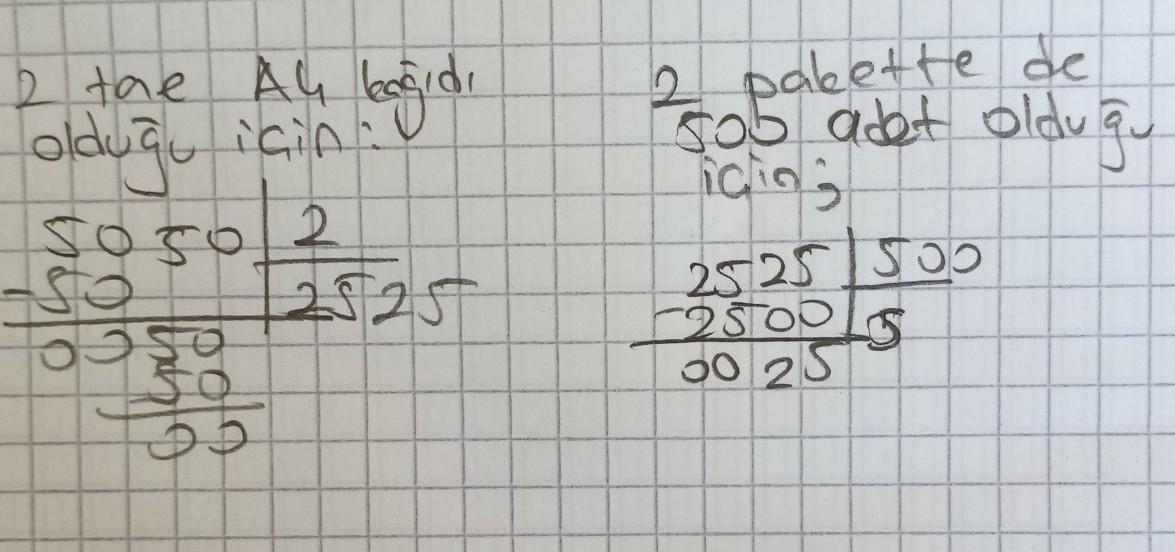 2 tae A4 kağıdı
olduğu için:
5050 2
-50 2525
0050
50
00
2 pakette de
500 adet olduğu
için;
2525 500
-2500 5
0025